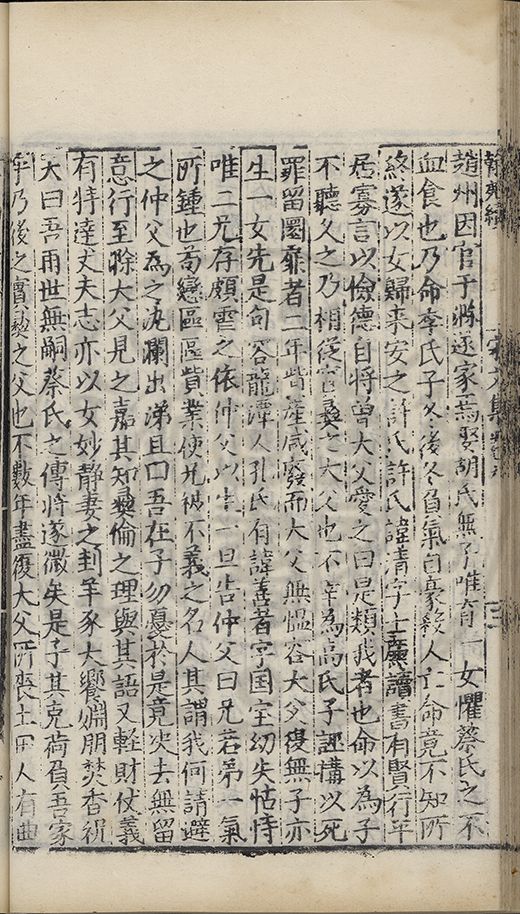 趙州因官于滁遂家焉娶胡氏無子唯育一女懼蔡氏之不
血食也乃命李氏子冬後冬負氣自豪殺人亡命竟不知所
終遂以女歸來安之許氏許氏諱清字士廉讀書有賢行平
居寡言以儉德自將曾大父愛之曰是類我者也命以為子
不聽久之乃相從官彝之大父也不幸為高氏子誣搆以死
罪留圜扉者二年貲產咸廢而大父無慍容大父復無子亦
生一女先是句容龍潭人孔氏有諱善者字国宝幼失怙恃
唯二兄存頗審之依仲父以生一旦告仲父曰兄若弟一氣
所鍾也苟戀區區貲業使兄被不義之名人其謂我何請避
之仲父為之汍瀾出涕且曰吾在子勿憂於是竟决去無留
意行至滁大父見之嘉其知彝倫之理與其語又軽財仗義
有特達丈夫志亦以女妙靜妻之刲羊豕大饗姻朋焚香祈
天曰吾兩世無嗣蔡氏之傳將遂微矣是子其克荷負吾家
乎乃後之實彝之父也不數年盡復大父所喪土田人有曲